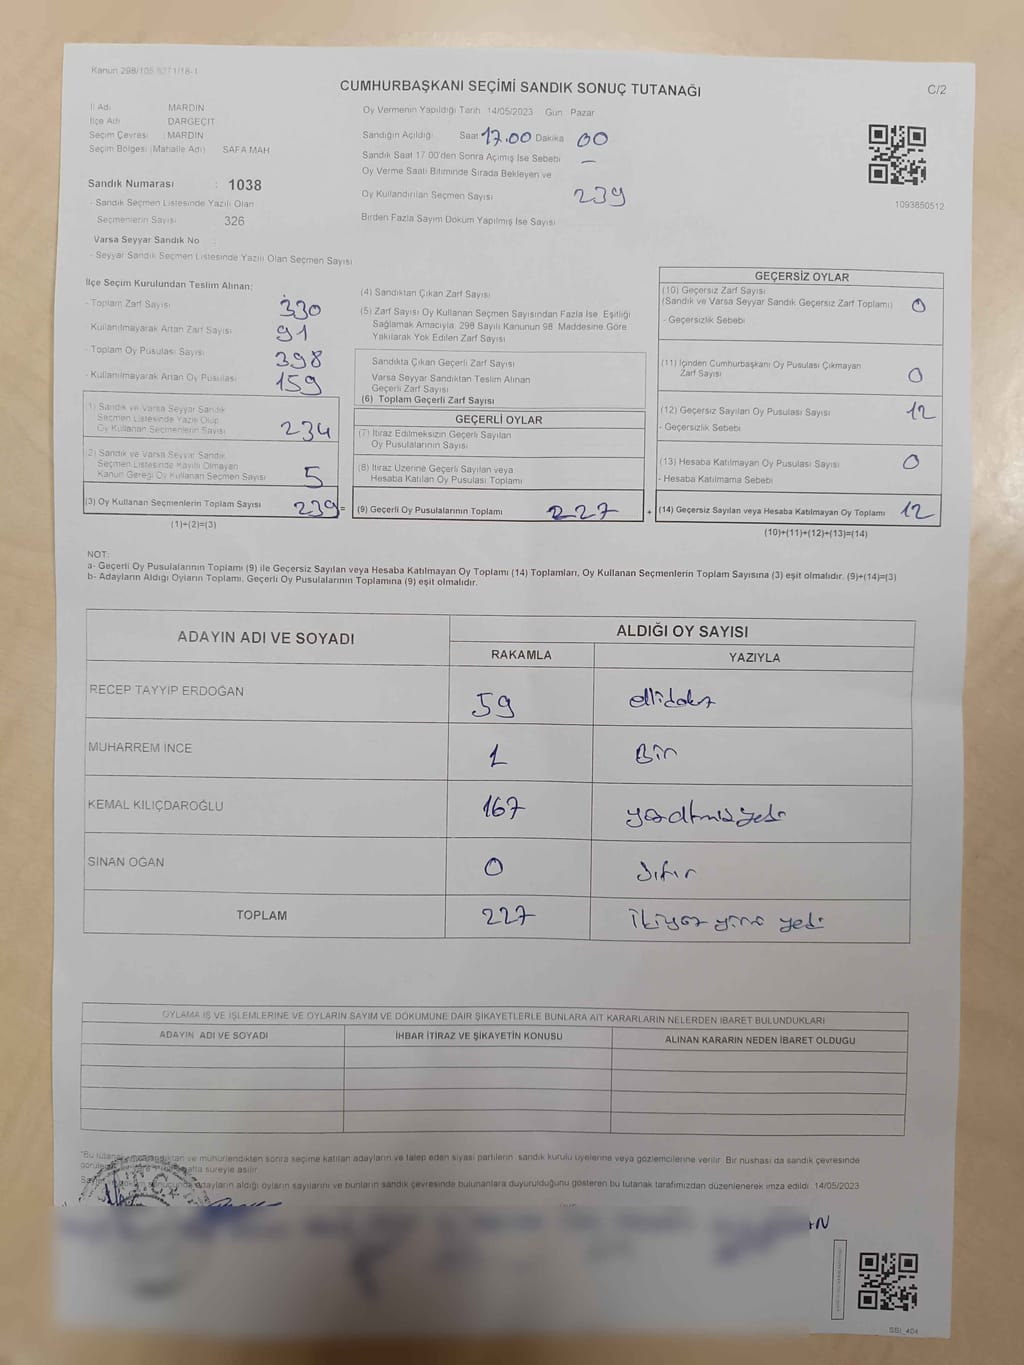 Kanun 298/105
CUMHURBAŞKANI SEÇİMİ SANDIK SONUÇ TUTANAĞI
C/2
İl Adı MARDİN
İlçe Adı DARGEÇİT
Seçim Çevresi : MARDİN
Seçim Bölgesi (Mahalle Adı) SAFA MAH
Sandık Numarası : 1038
- Sandık Seçmen Listesinde Yazılı Olan
Seçmenlerin Sayısı 326
Varsa Seyyar Sandık No :
- Seyyar Sandık Seçmen Listesinde Yazılı Olan Seçmen Sayısı
Oy Vermenin Yapıldığı Tarih 14/05/2023 Gün Pazar
Sandığın Açıldığı Saat 17.00 Dakika 00
Sandık Saat 17.00'den Sonra Açılmış İse Sebebi —
Oy Verme Saati Bitiminde Sırada Bekleyen ve
Oy Kullandırılan Seçmen Sayısı 239
Birden Fazla Sayım Döküm Yapılmış İse Sayısı
1093850512
İlçe Seçim Kurulundan Teslim Alınan;
- Toplam Zarf Sayısı 330
- Kullanılmayarak Artan Zarf Sayısı 91
- Toplam Oy Pusulası Sayısı 398
- Kullanılmayarak Artan Oy Pusulası 159
1) Sandık ve Varsa Seyyar Sandık
Seçmen Listesinde Yazılı Olup
Oy Kullanan Seçmenlerin Sayısı 234
2) Sandık ve Varsa Seyyar Sandık
Seçmen Listesinde Kayıtlı Olmayan
Kanun Gereği Oy Kullanan Seçmen Sayısı 5
(3) Oy Kullanan Seçmenlerin Toplam Sayısı 239 =
(1)+(2)=(3)
(4) Sandıktan Çıkan Zarf Sayısı
(5) Zarf Sayısı Oy Kullanan Seçmen Sayısından Fazla İse, Eşitliği
Sağlamak Amacıyla, 298 Sayılı Kanunun 98. Maddesine Göre
Yakılarak Yok Edilen Zarf Sayısı
Sandıkta Çıkan Geçerli Zarf Sayısı
Varsa Seyyar Sandıktan Teslim Alınan
Geçerli Zarf Sayısı
(6) Toplam Geçerli Zarf Sayısı
GEÇERLİ OYLAR
(7) İtiraz Edilmeksizin Geçerli Sayılan
Oy Pusulalarının Sayısı
(8) İtiraz Üzerine Geçerli Sayılan veya
Hesaba Katılan Oy Pusulası Toplamı
(9) Geçerli Oy Pusulalarının Toplamı 227 +
GEÇERSİZ OYLAR
(10) Geçersiz Zarf Sayısı
(Sandık ve Varsa Seyyar Sandık Geçersiz Zarf Toplamı) 0
- Geçersizlik Sebebi
(11) İçinden Cumhurbaşkanı Oy Pusulası Çıkmayan
Zarf Sayısı 0
(12) Geçersiz Sayılan Oy Pusulası Sayısı 12
- Geçersizlik Sebebi
(13) Hesaba Katılmayan Oy Pusulası Sayısı 0
- Hesaba Katılmama Sebebi
(14) Geçersiz Sayılan veya Hesaba Katılmayan Oy Toplamı 12
(10)+(11)+(12)+(13)=(14)
NOT:
a- Geçerli Oy Pusulalarının Toplamı (9) ile Geçersiz Sayılan veya Hesaba Katılmayan Oy Toplamı (14) Toplamları, Oy Kullanan Seçmenlerin Toplam Sayısına (3) eşit olmalıdır. (9)+(14)=(3)
b- Adayların Aldığı Oyların Toplamı, Geçerli Oy Pusulalarının Toplamına (9) eşit olmalıdır.
ADAYIN ADI VE SOYADI ALDIĞI OY SAYISI
RAKAMLA YAZIYLA
RECEP TAYYİP ERDOĞAN 59 ellidokuz
MUHARREM İNCE 1 Bir
KEMAL KILIÇDAROĞLU 167 yüzaltmışyedi
SİNAN OĞAN 0 Sıfır
TOPLAM 227 ikiyüz yirmi yedi
OYLAMA İŞ VE İŞLEMLERİNE VE OYLARIN SAYIM VE DÖKÜMÜNE DAİR ŞİKAYETLERLE BUNLARA AİT KARARLARIN NELERDEN İBARET BULUNDUKLARI
ADAYIN ADI VE SOYADI İHBAR İTİRAZ VE ŞİKAYETİN KONUSU ALINAN KARARIN NEDEN İBARET OLDUĞU
ve mühürlendikten sonra seçime katılan adayların ve talep eden siyasi partilerin sandık kurulu üyelerine veya gözlemcilerine verilir. Bir nüshası da sandık çevresinde
hafta süreyle asılır.
adayların aldığı oyların sayılarını ve bunların sandık çevresinde bulunanlara duyurulduğunu gösteren bu tutanak tarafımızdan düzenlenerek imza edildi. 14/05/2023
T.C.
SBI_404